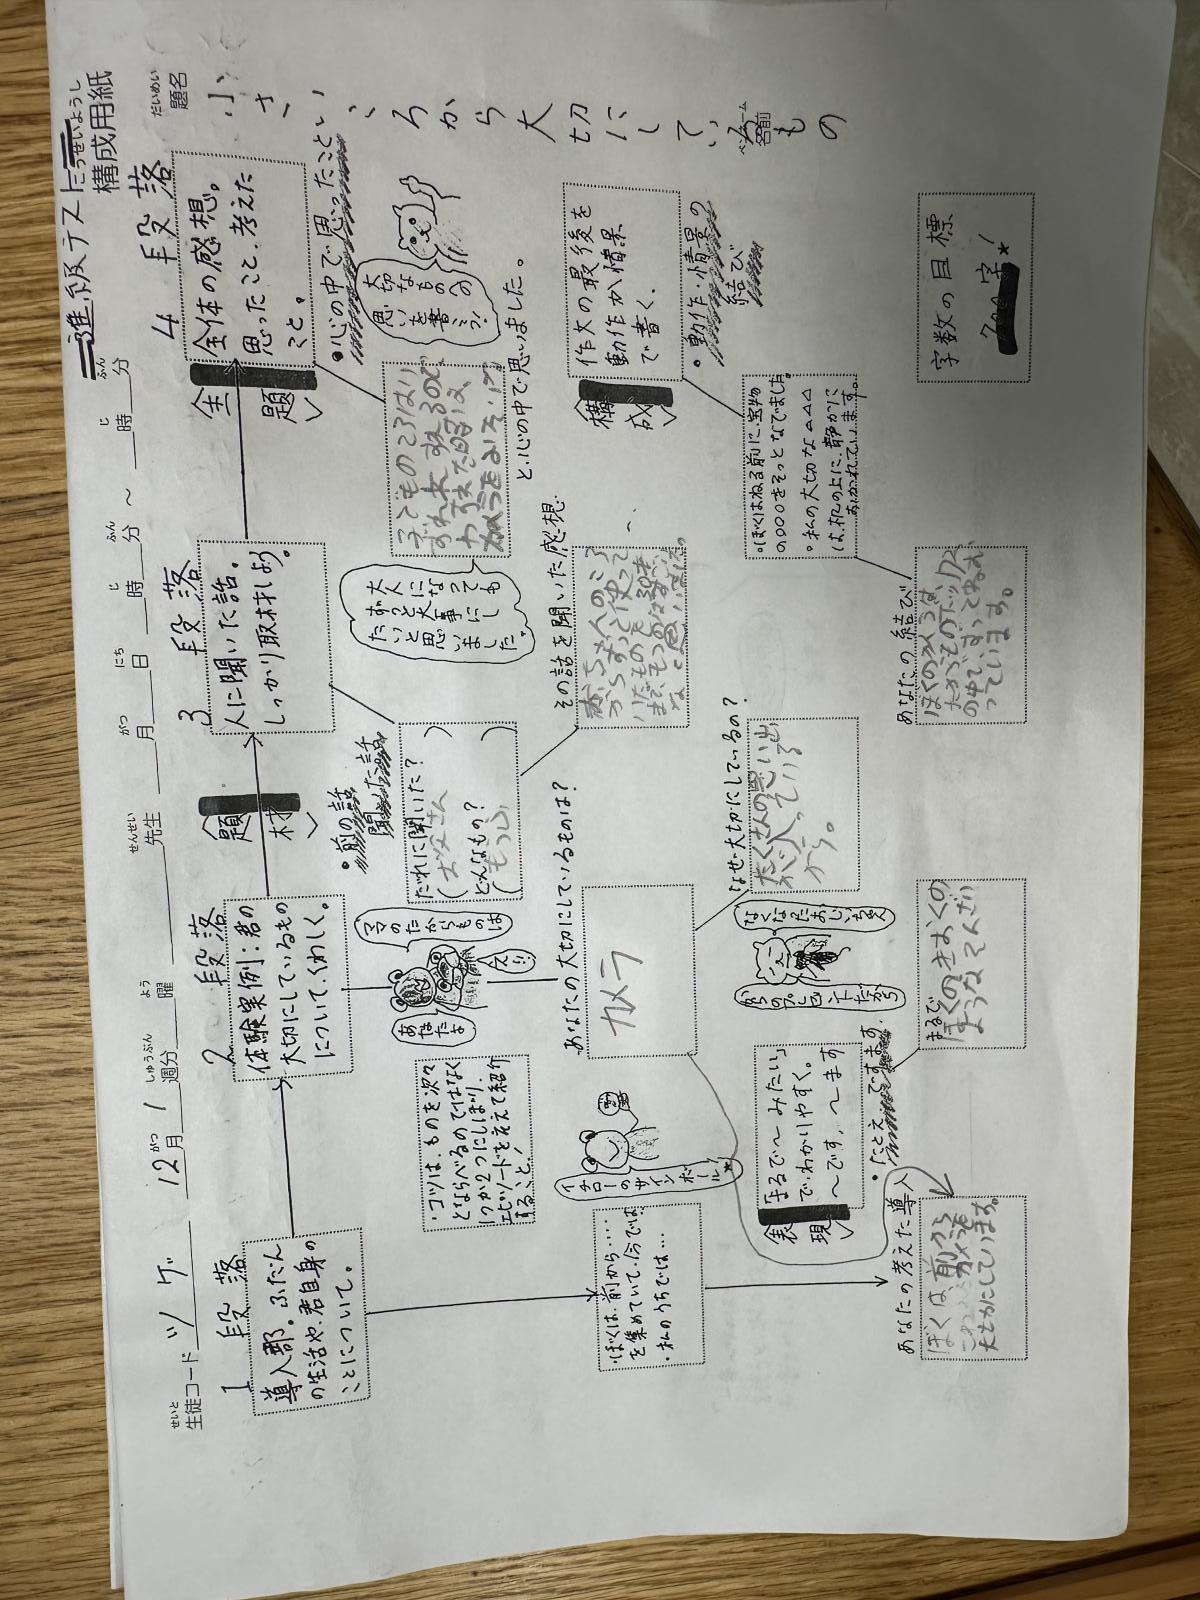 進級テスト
こうせいようし
構成用紙
せいと
生徒コード ツゲ
がつ
12月
しゅうぶん
1週分
よう
曜
せんせい
先生
がつ
月
にち
日
じ
時
ふん
分
〜
じ
時
ふん
分
だいめい
題名
小さいころから大切にしているもの
ペンネーム
名前
1段落
導入部。ふだん
の生活や、君自身の
ことについて。
・ぼくは、前から……
を集めていて、今では、
・私のうちでは…
あなたの考えた導入
ぼくは前から
大切にしています。
2段落
体験実例:君の
大切にしているもの
について、くわしく。
ママのたからものは
あなたよ
えっ!!
・コツは、ものを次々
とならべるのではなく
1つか2つにしぼり、
エピソードを交えて紹介
すること!
あなたの大切にしているものは?
カメラ
イチローのサインボール!
なぜ大切にしているの?
たくさんの思い出
が入っている
から。
なくなったおじいちゃん
からのプレゼントだから
〈表現〉
「まるで〜みたい」
でわかりやすく。
〜です、〜ます
・たとえ ですます
まるで
ぼくのきおくの
ような そんざい
〈題材〉
3段落
人に聞いた話。
しっかり取材しよう。
・前の話
聞いた話
だれに聞いた?
(お父さん)
どんなもの?
(もっふ)
大人になっても
ずっと大事にし
たいと思
いました。
その話を聞いた感想
〜
〈主題〉
4段落
全体の感想。
思ったこと、考えた
こと。
・心の中で思ったこと
大切な
ものへの
思いを書こう!
と、心の中で思いました。
〈構成〉
作文の最後を
動作か情景
で書く.
・動作・情景の
結び
・ぼくはねる前に、宝物
の〇〇〇をそっとなでました。
・私の大切な△△△
は、机の上に、静かに
おかれています。
あなたの結び
ぼくのカメラは、
の中で、ずっとねむ
っています。
字数の目標
700字!